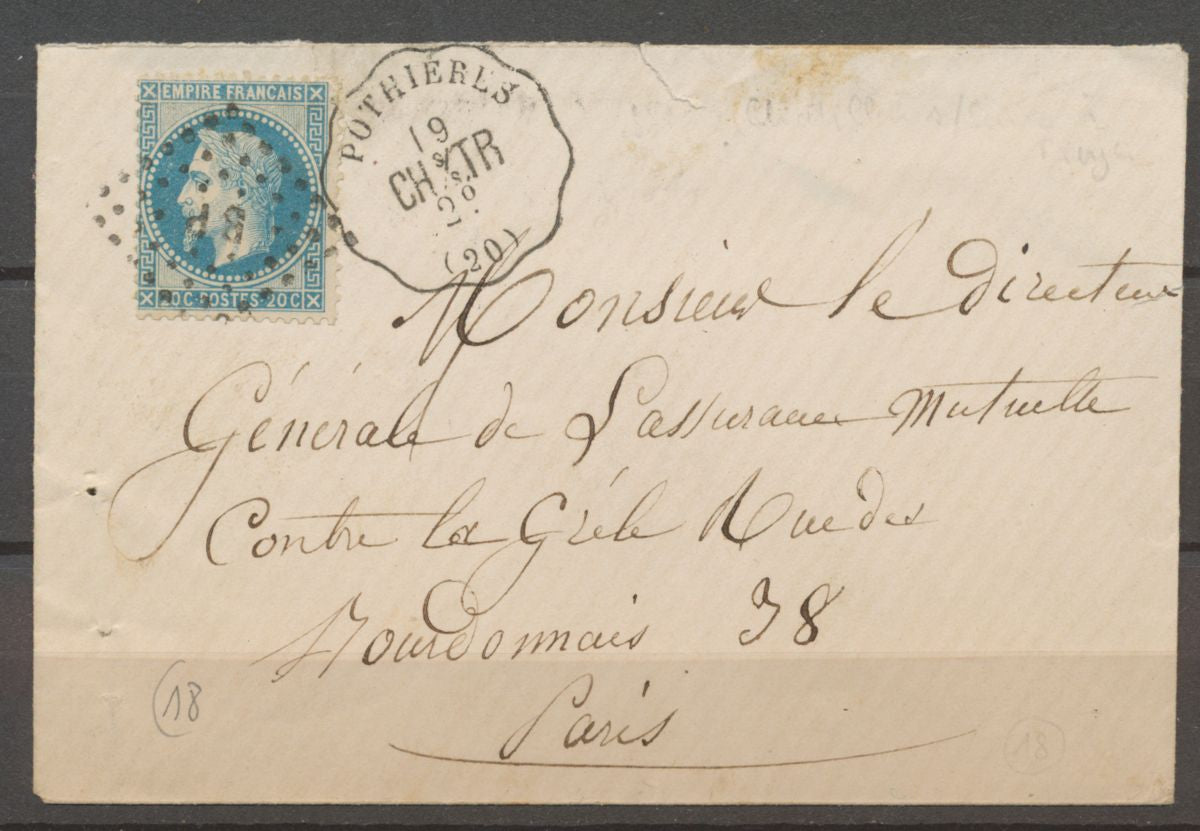 EMPIRE FRANCAIS
20C·POSTES·20C
POTHIÈRES
19
CHS/TR
S.
2º
(20)
Monsieur le directeur
Générale de L'assurance Mutuelle
Contre la Grêle Rue des
Bourdonnais 38
Paris
(18)
18